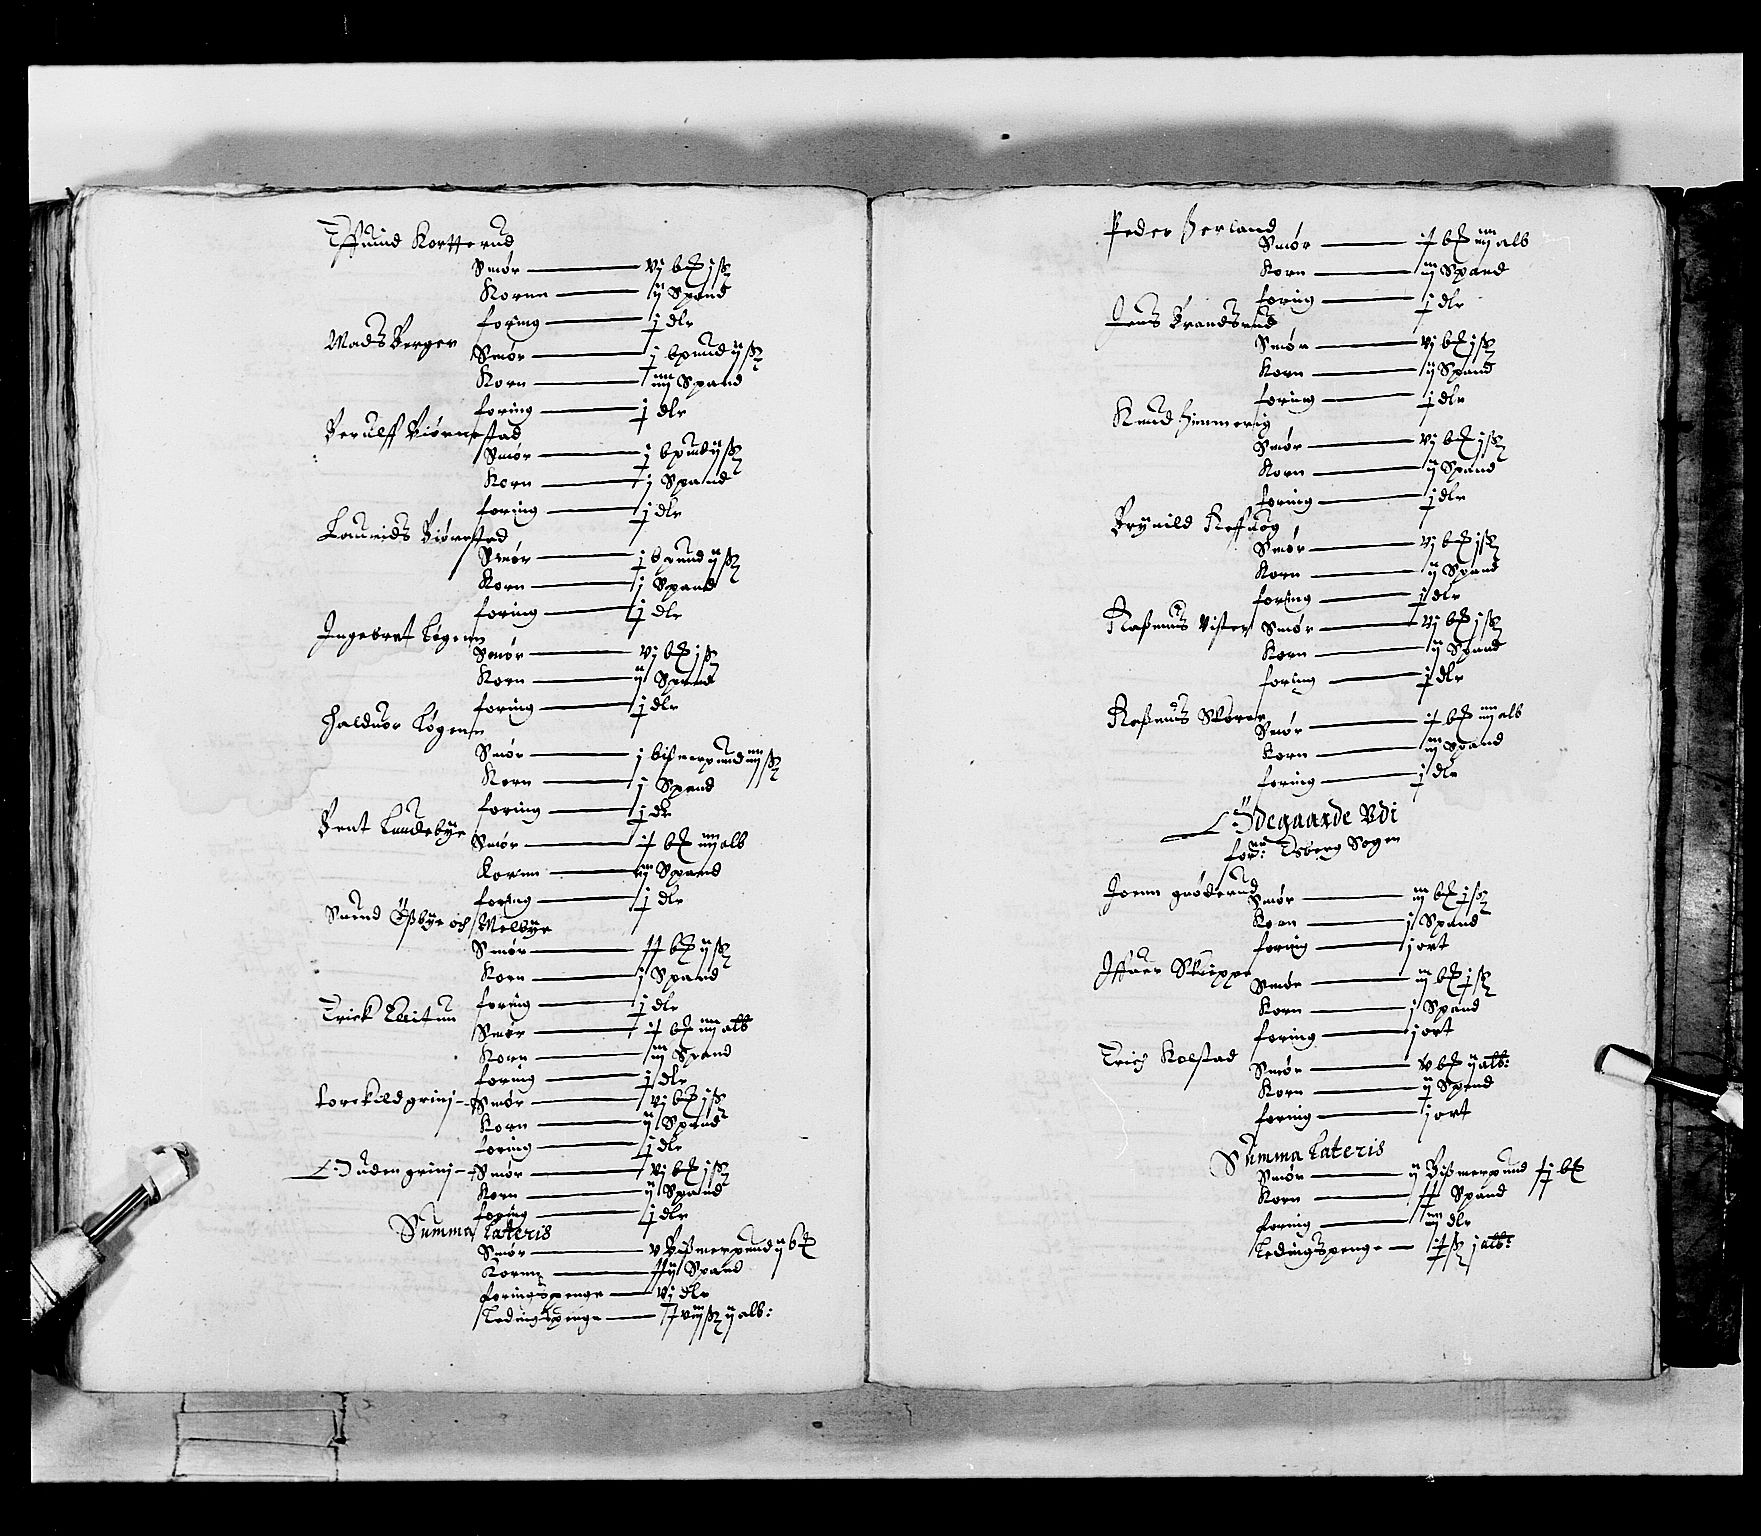 Effuind Kortterud
Smør — vj b℔ j ß
Kornn — ij Spand
foring — j dlr
Mads Berger
Smør — j bpund ij ß
Korn — iiij Spand
foring — j dlr
Berulff Biørnestad
Smør — j bpund ij ß
Korn — j Spand
foring — j dlr
Laurids Biørnstad
Smør — j bpund ij ß
Korn — j Spand
foring — j dlr
Ingebret Løgenn
Smør — vj b℔ j ß
Korn — ij Spand
foring — j dlr
Halduor Løgenn
Smør — j bißmerpund iiij ß
Korn — j Spand
foring — j dlr
Bent Lundebye
Smør — ix b℔ iiij alb
Kornn — iij Spand
foring — j dlr
Suend Ößbye och Melbye
Smør — x b℔ ij ß
Korn — j Spand
foring — j dlr
Erick
Smør — ix b℔ iiij alb
Korn — iij Spand
foring — j dlr
Torckild grinj — Smør — vj b℔ j ß
Korn — ij Spand
foring — j dlr
Auden grinj — Smør — vj b℔ j ß
Korn — ij Spand
foring — j dlr
Summa Lateris
Smør — v Bißmerpund ij b℔
Kornn — Spand
foringspenge — vj dlr
Ledingspenge — ß ij alb:
Peder Herland
Smør — ix b℔ iiij alb
Korn — iij Spand
foring — j dlr
Jens Brandsrud
Smør — vj b℔ j ß
Korn — ij Spand
foring — j dlr
Knud Himmerig
Smør — vj b℔ j ß
Korn — ij Spand
foring — j dlr
Brynild Reffhog
Smør — vj b℔ j ß
Korn — ij Spand
foring — j dlr
Raßmus Vister Smør — vj b℔ j ß
Korn — ij Spand
foring — j dlr
Raßmus
Smør — ix b℔ iiij alb
Korn — iij Spand
foring — j dlr
Ödegaarde Vdi
forn: Edsberg Sogen
Joenn grøderud
Smør — iij b℔ j ß
Korn — j Spand
foring — j ort
Iffuer Skippe
Smør — iij b℔ j ß
Korn — j Spand
foring — j ort
Erich Kolstad
Smør — v b℔ ij alb:
Korn — ij Spand
foring — j ort
Summa Lateris
Smør — ij Bißmerpund xj b℔
Korn — Spand
foring — iiij dlr
Ledingspenge — ix ß j alb: